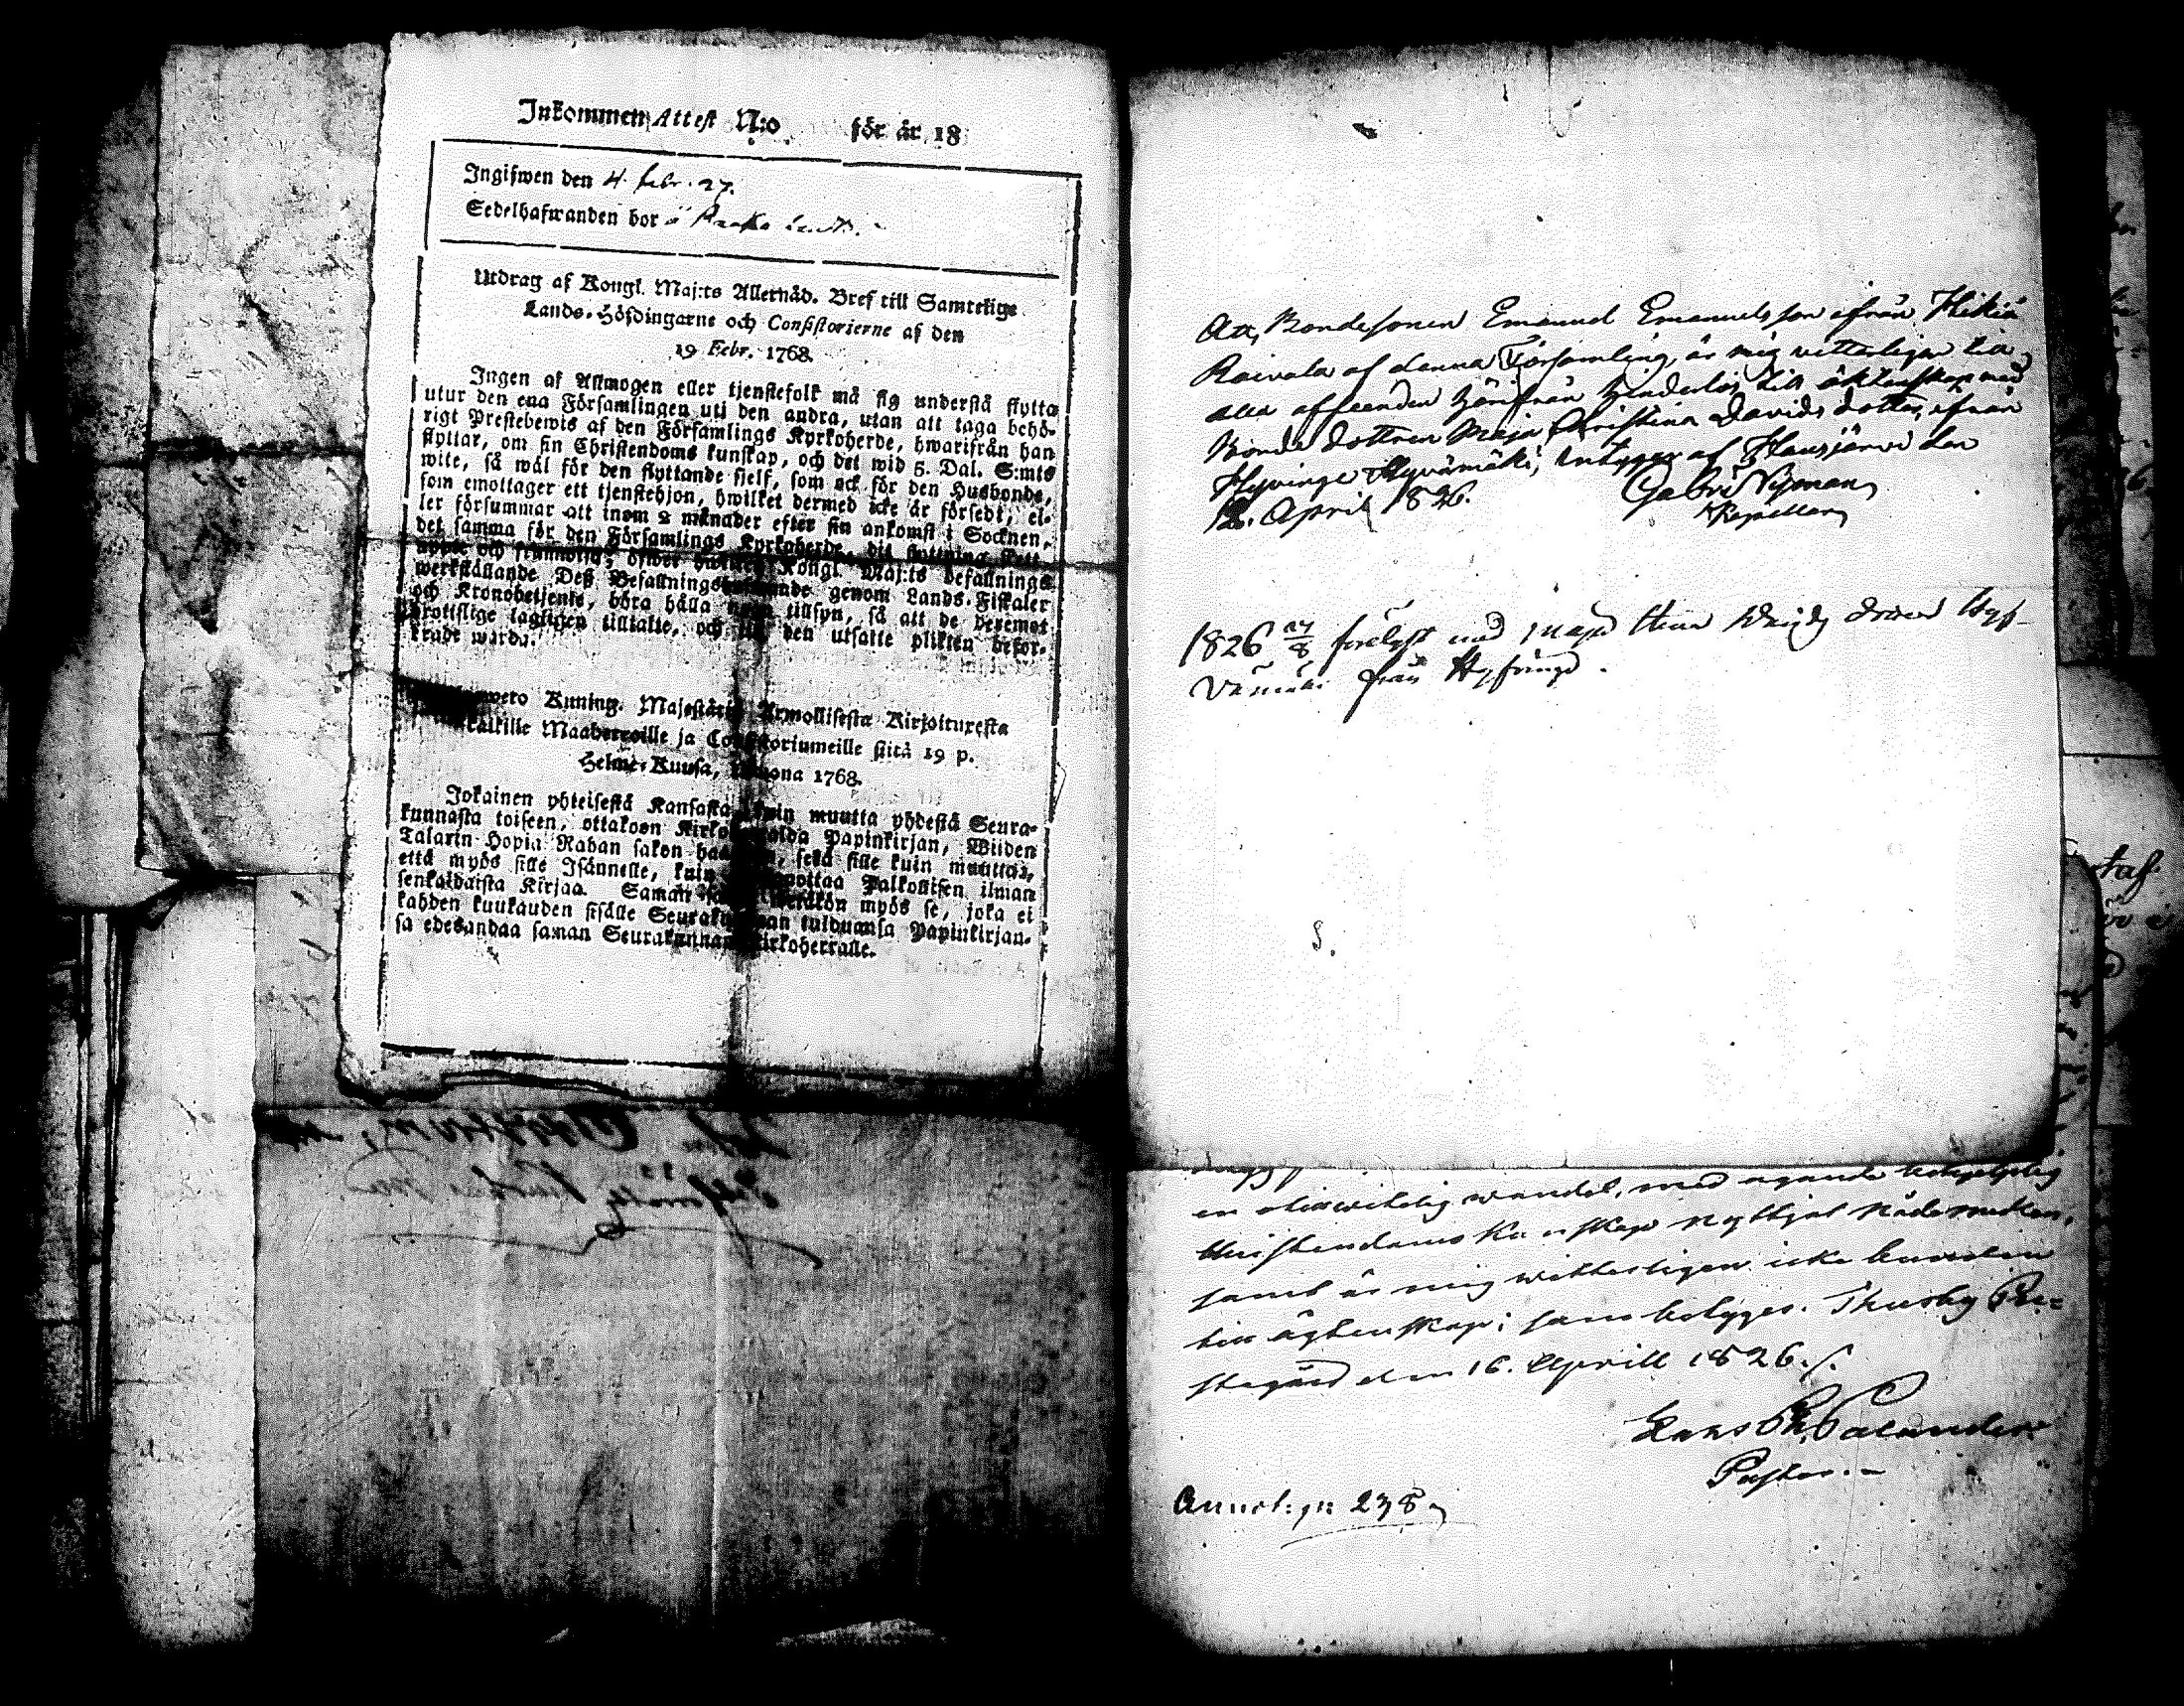 Inkommen Attest N:o för år 18
Ingifwen den 4. febr. 27.
Sedelhafwanden bor i
Utdrag af Kongl. Maj:ts Allernåd. Bref till Samtelige
Lands-Höfdingarne och Consistorierne af den
19 Febr. 1768.
Ingen af Allmogen eller tjenstefolk må sig understå flytta
utur den ena Församlingen uti den andra, utan att taga behö-
rigt Prestebewis af den Församlings Kyrkoherde, hwarifrån han
flyttar, om sin Christendoms kunskap, och det wid 5. Dal. S:mts
wite, så wäl för den flyttande sjelf, som ock för den Husbonde,
som emottager ett tjenstehjon, hwilket dermed icke är försedt, el-
ler försummar att inom 2 månader efter sin ankomst i Socknen,
det samma för den Församlings Kyrkoherde, dit flyttning skett,
uppte och framwisa; öfwer hwilken Kongl. Maj:ts befallnings
werkställande Deß Befallningshafwande genom Lands-Fiskaler
och Kronobetjente, böra hålla noga tillsyn, så att de deremot
brottslige lagligen tilltalte, och till den utsatte plikten befor-
drade warda.
Kuning. Majestätin Armollisesta Kirjoituxesta
kaikille Maaherroille ja Consistoriumeille siitä 19 p.
Helme-Kuusa, Wuona 1768.
Jokainen yhteisestä Kansasta, kuin muutta yhdestä Seura-
kunnasta toiseen, ottakoon Kirkoherralda Papinkirjan, Wiiden
Talarin Hopia Rahan sakon haastolla, sekä sille kuin muuttaa,
että myös sille Isännelle, kuin wastaanottaa Palkollisen ilman
senkaldaista Kirjaa. Saman sakon wetäkön myös se, joka ei
kahden kuukauden sisälle Seurakunnan tulduansa Papinkirjan-
sa edesandaa saman Seurakunnan Kirkoherralle.
Att Bondesonen Emanuel Emanuelsson ifrån Hikiä
Raivala af denna Församling, är mig vitterligen till
alla afseenden härifrån hinderlös till äktenskap med
Bonde dottren Maja Christina Davids dotter, ifrån
Hyvinge Hyvämäki, intygar af Hausjärvi den
12. April 1826. Gabr. Nyman
Kapellan
1826 27/8 förelyst med Maja Stina Davids dotter Hyf-
vämäki från Hyfvinge.
S.
en oklanderlig wandel, med egande behjelpelig
Christendoms kunskap nyttjat Nådemedlen,
samt är mig witterligen icke bunden
till ägtenskap; som betyges. Thusby Pre-
stegård den 16. Aprill 1826.
Hans Palander
Pastor.
Annot: p: 238